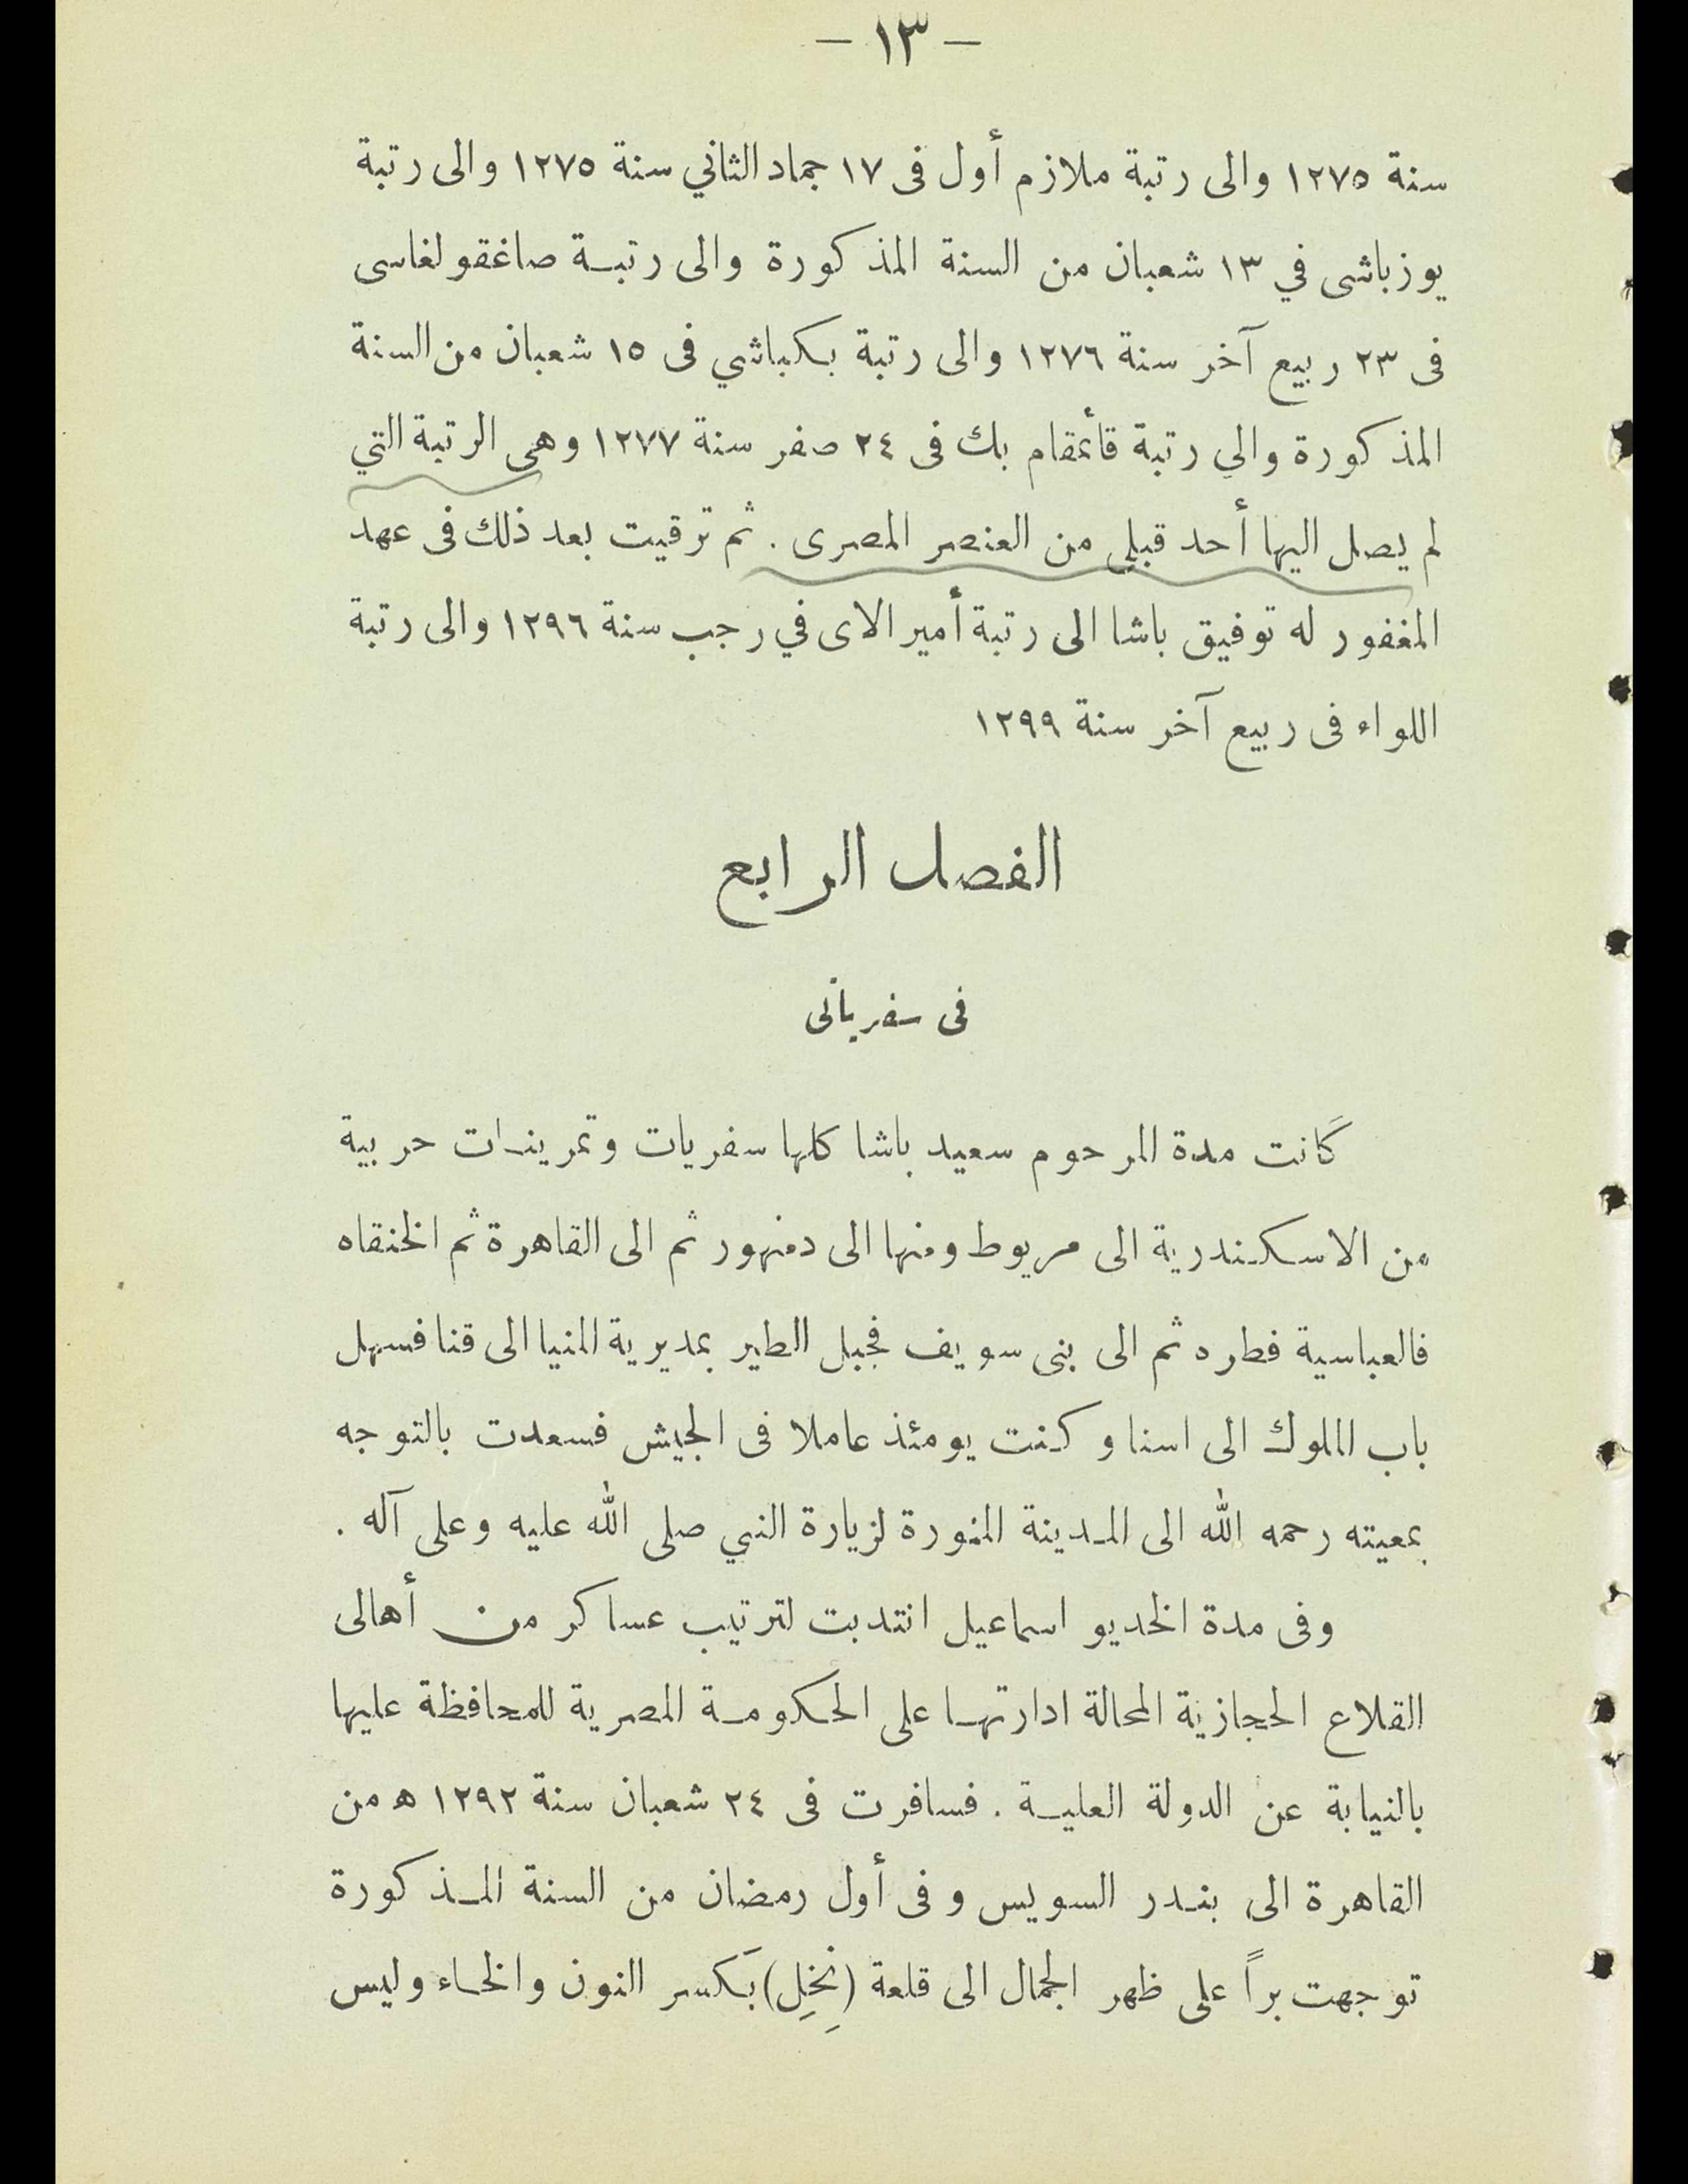 — ١٣ —
سنة ١٢٧٥ والى رتبة ملازم أول فى ١٧ جماد الثاني سنة ١٢٧٥ والى رتبة
يوزباشى في ١٣ شعبان من السنة المذكورة والى رتبـة صاغقولغاسى
فى ٢٣ ربيع آخر سنة ١٢٧٦ والى رتبة بكباشي فى ١٥ شعبان من السنة
المذكورة والي رتبة قائمقام بك فى ٢٤ صفر سنة ١٢٧٧ وهى الرتبة التي
لم يصل اليها أحد قبلي من العنصر المصرى . ثم ترقيت بعد ذلك فى عهد
المغفور له توفيق باشا الى رتبة أمير الاى في رجب سنة ١٢٩٦ والى رتبة
اللواء فى ربيع آخر سنة ١٢٩٩
الفصل الرابع
فى سفرياتى
كانت مدة المرحوم سعيد باشا كلها سفريات وتمرينـات حربية
من الاسكـندرية الى مريوط ومنها الى دمنهور ثم الى القاهرة ثم الخنقاه
فالعباسية فطره ثم الى بنى سويف فجبل الطير بمديرية المنيا الى قنا فسهل
باب الملوك الى اسنا وكنت يومئذ عاملا فى الجيش فسعدت بالتوجه
بمعيته رحمه الله الى المـدينة المنورة لزيارة النبي صلى الله عليه وعلى آله .
وفى مدة الخديو اسماعيل انتدبت لترتيب عساكر من أهالى
القلاع الحجازية المحالة ادارتهـا على الحكومـة المصرية للمحافظة عليها
بالنيابة عن الدولة العليـة . فسافرت فى ٢٤ شعبان سنة ١٢٩٢ ه من
القاهرة الى بنـدر السويس وفى أول رمضان من السنة المـذكورة
توجهت براً على ظهر الجمال الى قلعة (نِخِل) بَكسر النون والخـاء وليس